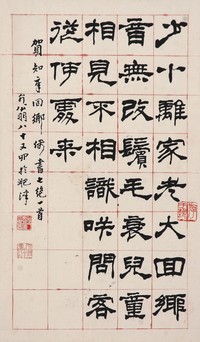 少小離家老大回鄉
音無改鬢毛衰兒童
相見不相識咲問客
從何處来
賀知章回鄉偶書七絕一首
翁八十又